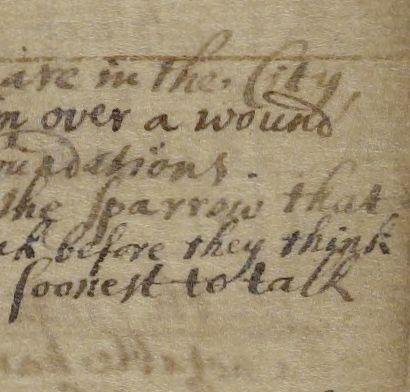 are in the City,
over a wound
oundations.
the sparrow that
before they think
soonest to talk